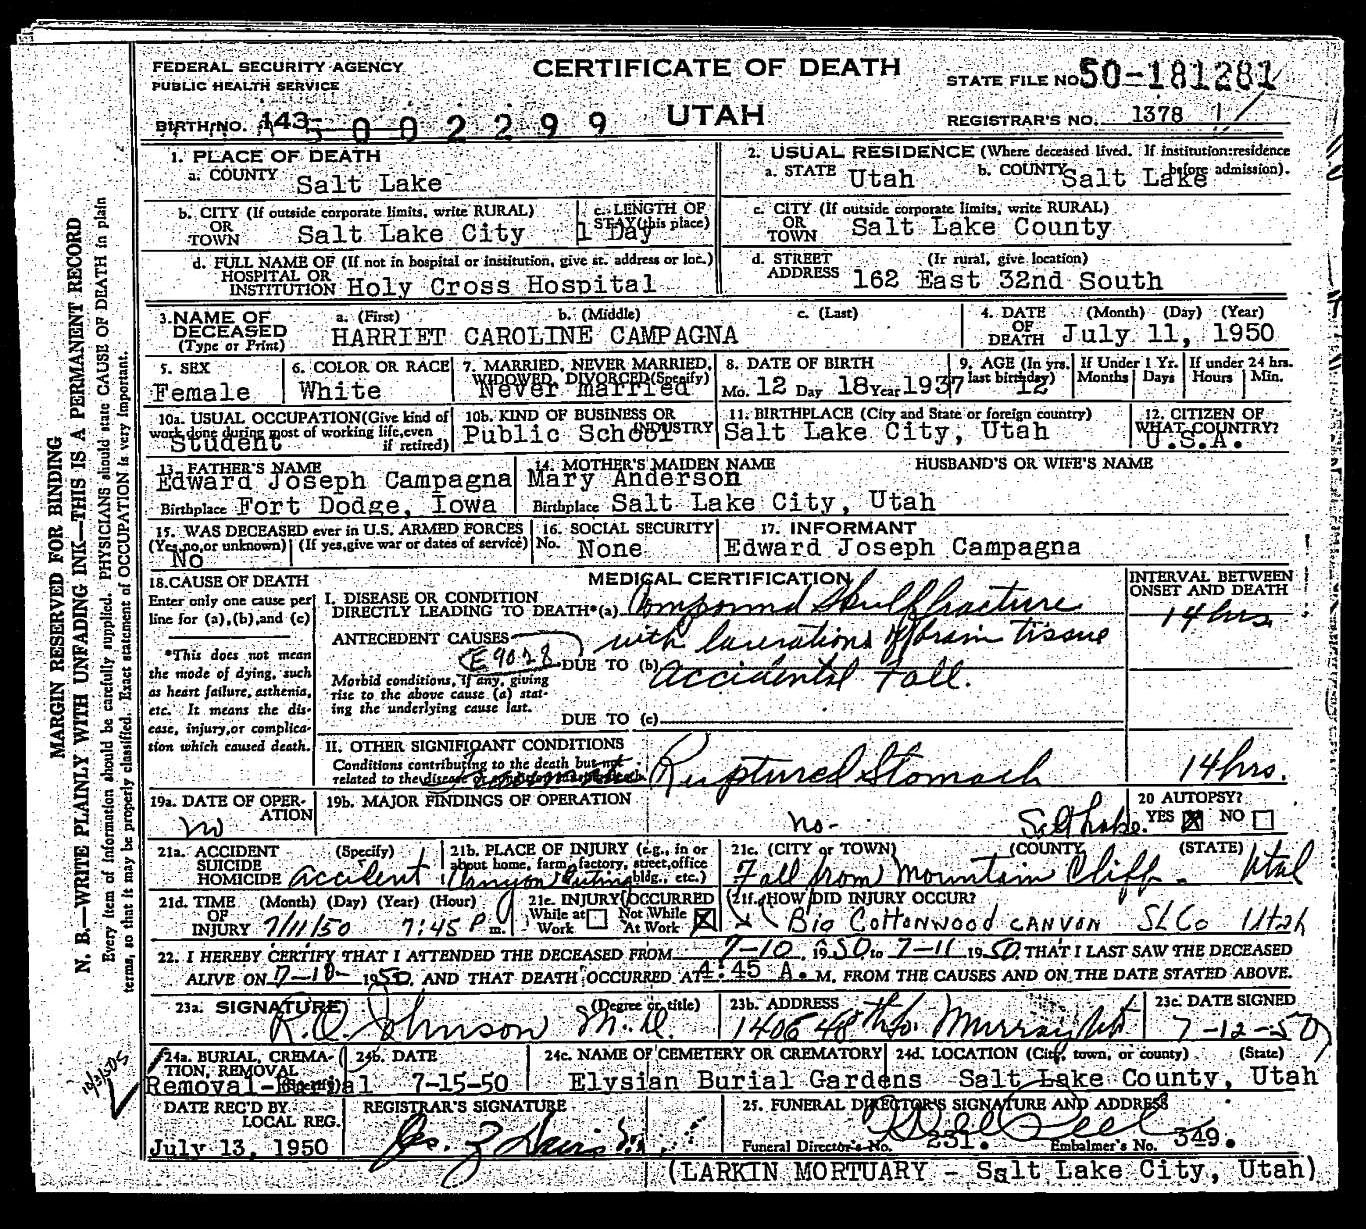 FEDERAL SECURITY AGENCY
PUBLIC HEALTH SERVICE
CERTIFICATE OF DEATH
UTAH
STATE FILE NO. 50-181281
REGISTRAR'S NO. 1378
BIRTH NO. 143-
5 0 0 2 2 9 9
MARGIN RESERVED FOR BINDING
N. B.—WRITE PLAINLY WITH UNFADING INK—THIS IS A PERMANENT RECORD
Every item of information should be carefully supplied. PHYSICIANS should state CAUSE OF DEATH in plain
terms, so that it may be properly classified. Exact statement of OCCUPATION is very important.
1. PLACE OF DEATH
a. COUNTY Salt Lake
2. USUAL RESIDENCE (Where deceased lived. If institution: residence before admission).
a. STATE Utah b. COUNTY Salt Lake
b. CITY (If outside corporate limits, write RURAL)
OR TOWN Salt Lake City
c. LENGTH OF STAY (this place) 1 Day
c. CITY (If outside corporate limits, write RURAL)
OR TOWN Salt Lake County
d. FULL NAME OF (If not in hospital or institution, give st. address or loc.)
HOSPITAL OR INSTITUTION Holy Cross Hospital
d. STREET ADDRESS (If rural, give location)
162 East 32nd South
3. NAME OF DECEASED (Type or Print)
a. (First) b. (Middle) c. (Last)
HARRIET CAROLINE CAMPAGNA
4. DATE OF DEATH (Month) (Day) (Year)
July 11, 1950
5. SEX
Female
6. COLOR OR RACE
White
7. MARRIED, NEVER MARRIED, WIDOWED, DIVORCED (Specify)
Never married
8. DATE OF BIRTH
Mo. 12 Day 18 Year 1937
9. AGE (In yrs. last birthday) 12
If Under 1 Yr. Months Days
If under 24 hrs. Hours Min.
10a. USUAL OCCUPATION (Give kind of work done during most of working life, even if retired)
Student
10b. KIND OF BUSINESS OR INDUSTRY
Public School
11. BIRTHPLACE (City and State or foreign country)
Salt Lake City, Utah
12. CITIZEN OF WHAT COUNTRY?
U.S.A.
13. FATHER'S NAME
Edward Joseph Campagna
Birthplace Fort Dodge, Iowa
14. MOTHER'S MAIDEN NAME
Mary Anderson
Birthplace Salt Lake City, Utah
HUSBAND'S OR WIFE'S NAME
15. WAS DECEASED ever in U.S. ARMED FORCES
(Yes, no, or unknown) (If yes, give war or dates of service)
No
16. SOCIAL SECURITY
No. None
17. INFORMANT
Edward Joseph Campagna
18. CAUSE OF DEATH
Enter only one cause per
line for (a), (b), and (c)
*This does not mean
the mode of dying, such
as heart failure, asthenia,
etc. It means the dis-
ease, injury, or complica-
tion which caused death.
MEDICAL CERTIFICATION
INTERVAL BETWEEN
ONSET AND DEATH
I. DISEASE OR CONDITION
DIRECTLY LEADING TO DEATH*(a) Compound Skull fracture
14 hrs.
with lacerations of brain tissue
ANTECEDENT CAUSES
E 902 8
DUE TO (b) Accidental Fall.
Morbid conditions, if any, giving
rise to the above cause (a) stat-
ing the underlying cause last.
DUE TO (c)
II. OTHER SIGNIFICANT CONDITIONS
Conditions contributing to the death but not
related to the disease or condition
Ruptured Stomach 14 hrs.
19a. DATE OF OPERATION
no
19b. MAJOR FINDINGS OF OPERATION
no-
20 AUTOPSY?
YES ☒ NO ☐
21a. ACCIDENT (Specify)
SUICIDE
HOMICIDE accident
21b. PLACE OF INJURY (e.g., in or about home, farm, factory, street, office bldg., etc.)
Canyon Outing
21c. (CITY or TOWN) (COUNTY) (STATE)
Salt Lake. Utah
Fall from Mountain Cliff.
21d. TIME OF INJURY (Month) (Day) (Year) (Hour)
7/11/50 7:45 P m.
21e. INJURY OCCURRED
While at Work ☐ Not While At Work ☒
21f. HOW DID INJURY OCCUR?
BIG COTTONWOOD CANYON SL Co Utah
22. I HEREBY CERTIFY THAT I ATTENDED THE DECEASED FROM 7-10, 1950 to 7-11 1950. THAT I LAST SAW THE DECEASED
ALIVE ON 7-10- 1950, AND THAT DEATH OCCURRED AT 4:45 A. M. FROM THE CAUSES AND ON THE DATE STATED ABOVE.
23a. SIGNATURE (Degree or title)
R.O. Johnson M.D.
23b. ADDRESS
1406 48th So. Murray Ut
23c. DATE SIGNED
7-12-50
24a. BURIAL, CREMATION, REMOVAL (Specify)
Removal-Burial
24b. DATE
7-15-50
24c. NAME OF CEMETERY OR CREMATORY
Elysian Burial Gardens
24d. LOCATION (City, town, or county) (State)
Salt Lake County, Utah
DATE REC'D BY LOCAL REG.
July 13, 1950
REGISTRAR'S SIGNATURE
25. FUNERAL DIRECTOR'S SIGNATURE AND ADDRESS
Funeral Director's No. 231. Embalmer's No. 349.
(LARKIN MORTUARY - Salt Lake City, Utah)